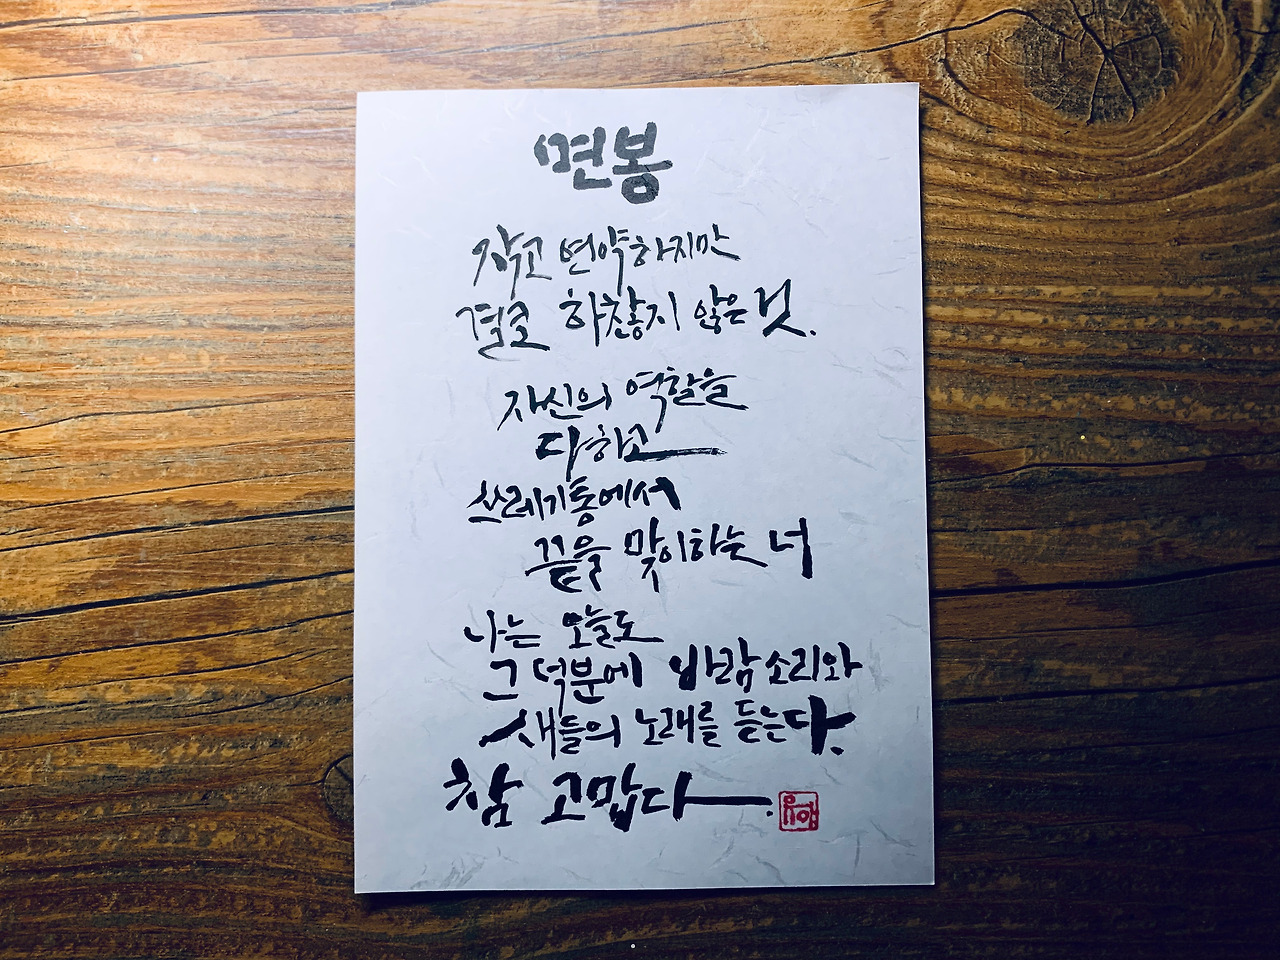 면봉
작고 연약하지만
결코 하찮지 않은 것.
자신의 역할을
다하고
쓰레기통에서
끝을 맞이하는 너
나는 오늘도
그 덕분에 바람소리와
새들의 노래를 듣는다.
참 고맙다.